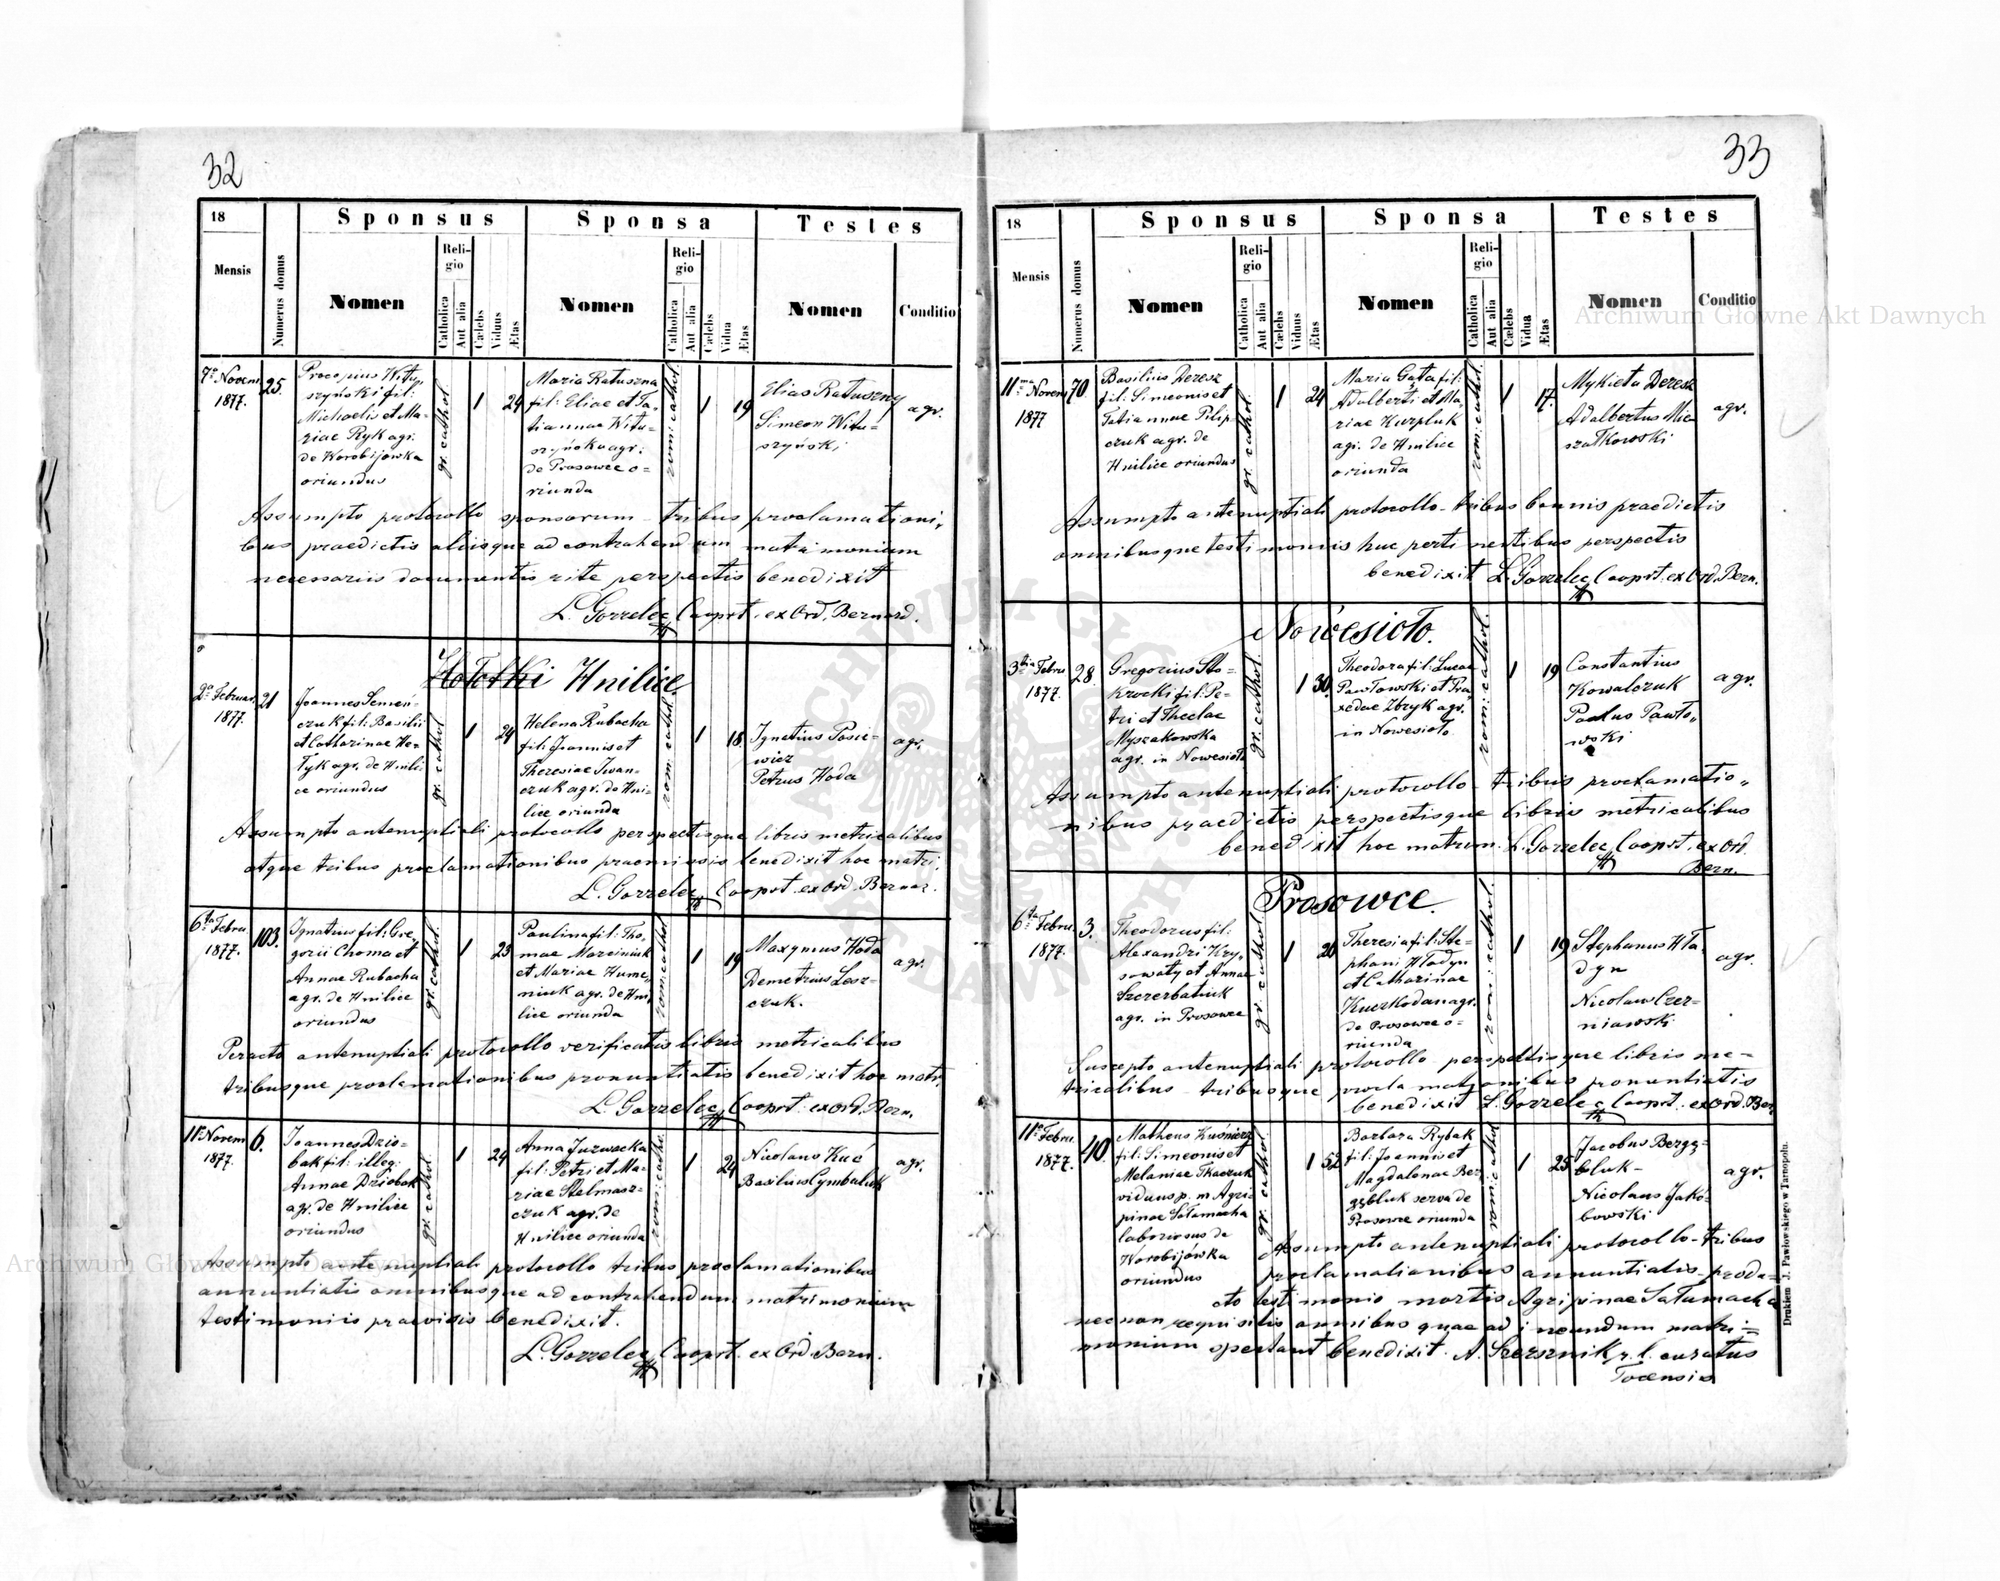 32
18
Mensis
Numerus domus
Sponsus
Nomen
Religio
Catholica
Aut alia
Cælebs
Viduus
Ætas
Sponsa
Nomen
Religio
Catholica
Aut alia
Cælebs
Vidua
Ætas
Testes
Nomen
Conditio
7a Novem
1877.
25.
Procopius Witu-
szyński fil:
Michaelis et Ma-
riae Ryk agr.
de Worobijówka
oriundus
gr. cathol.
1
24
Maria Ratuszna
fil: Eliae et Ta-
tiannae Witu-
szyńska agr.
de Prosowce o-
riunda
rom: cathol.
1
19
Elias Ratuszny
Simeon Witu-
szyński
agr.
Assumpto protocollo sponsorum tribus proclamationi-
bus praedictis aliisque ad contrahendum matrimonium
necessariis documentis rite perspectis benedixit
L. Gorzelec Cooprt. ex Ord. Bernard.
Hołotki Hnilice
2a Februar.
1877.
21
Joannes Semeń-
czuk fil: Basilii
et Catharinae
agr. de Hnili-
ce oriundus
gr. cathol
1
24
Helena Rubacha
fil: Joannis et
Theresiae Iwan-
czuk agr. de Hni-
lice oriunda
rom: cathol.
1
18
Ignatius
wicz
Petrus Hoda
agr.
Assumpto antenuptiali protocollo perspectisque libris metricalibus
atque tribus proclamationibus praemissis benedixit hoc matri.
L. Gorzelec Cooprt. ex Ord. Bernar.
6ta Febru.
1877.
103.
Ignatius fil: Gre-
gorii Choma et
Annae Rubacha
agr. de Hnilice
oriundus
gr. cathol.
1
23
Paulina fil: Tho-
mae Marciniuk
et Mariae Hume-
niuk agr. de Hni
lice oriunda
rom: cathol
1
19
Maxymus Hoda
Demetrius Lesz-
czuk.
agr.
Peracto antenuptiali protocollo verificatis libris metricalibus
tribusque proclamationibus pronuntiatis benedixit hoc matr.
L. Gorzelec Cooprt: ex Ord. Bern.
11a Novem
1877.
6.
Joannes Dzio-
bak fil: illeg:
Annae Dziobak
agr. de Hnilice
oriundus
gr. cathol.
1
24
Anna Jurwacka
fil: Petri et Ma-
riae Stelmasz-
czuk agr. de
Hnilice oriunda
rom: cathol.
1
24
Nicolaus Kuć
Basilius Cymbaluk
agr.
Assumpto ante nuptiali protocollo tribus proclamationibus
annuntiatis omnibusque ad contrahendum matrimonium
testimoniis praevisis benedixit.
L. Gorzelec Cooprt. ex Ord Bern.
33
18
Mensis
Numerus domus
Sponsus
Nomen
Religio
Catholica
Aut alia
Cælebs
Viduus
Ætas
Sponsa
Nomen
Religio
Catholica
Aut alia
Cælebs
Vidua
Ætas
Testes
Nomen
Conditio
11ma Novem
1877
70.
Basilius Deresz
fil: Simeonis et
Tatiannae Pilip-
czuk agr. de
Hnilice oriundus
gr. cathol.
1
24
Maria Gata fil:
Adalberti et Ma-
riae Kurpluk
agr. de Hnilice
oriunda
rom: cathol.
1
17.
Mykieta Deresz
Adalbertus Mie
szałkowski
agr.
Assumpto antenuptiali protocollo tribus bannis praedictis
omnibusque testimoniis huc pertinentibus perspectis
benedixit L. Gorzelec Cooprt. ex Ord. Bern.
Nowesioło.
3tia Febru
1877.
28.
Gregorius Sto-
krocki fil: Pe-
tri et Theclae
Myszakowska
agr. in Nowesioło
gr. cathol.
1
30.
Theodora fil: Lucae
Pawłowski et Pra-
xedae Zbryk agr.
in Nowesioło
rom: cathol.
1
19
Constantius
Kowalczuk
Paulus Pawło-
wski
agr.
Assumpto antenuptiali protocollo tribus proclamatio-
nibus praedictis perspectisque libris metricalibus
benedixit hoc matrim. L. Gorzelec Cooprt. ex Ord.
Bern.
Prosowce.
6ta Febru.
1877.
3.
Theodorus fil:
Alexandri Kry-
sowaty et Annae
Szczerbatiuk
agr. in Prosowce
gr. cathol.
1
26
Theresia fil: Ste-
phani Hładyn
et Catharinae
Kuczkodan agr.
de Prosowce o-
riunda
rom: cathol.
1
19
Stephanus Hła-
dyn
Nicolaus Czer-
niawski
agr.
Suscepto antenuptiali protocollo perspectisque libris me-
tricalibus tribusque proclamationibus pronuntiatis
benedixit L. Gorzelec Cooprt. ex Ord. Ber.
11a Febru.
1877.
40.
Matheus Kuśnierz
fil: Simeonis et
Melaniae Tkaczuk
viduus p. m Agri-
pinae Sałamacha
laboriosus de
Worobijówka
oriundus
gr. cathol
1
52
Barbara Rybak
fil: Joannis et
Magdalenae Ber-
gzbluk serva de
Prosowce oriunda
rom: cathol
1
25
Jacobus Bergz-
bluk
Nicolaus Jakó-
bowski
agr.
Assumpto antenuptiali protocollo tribus
proclamationibus annuntiatis produ-
cto testimonio mortis Agripinae Sałamacha
necnon requisitis omnibus quae ad ineundum matri-
monium spectant benedixit. A. Szersznik r. l. curatus
Tocensis
Drukiem J. Pawłowskiego w Tarnopolu.
Archiwum Główne Akt Dawnych
Archiwum Główne Akt Dawnych